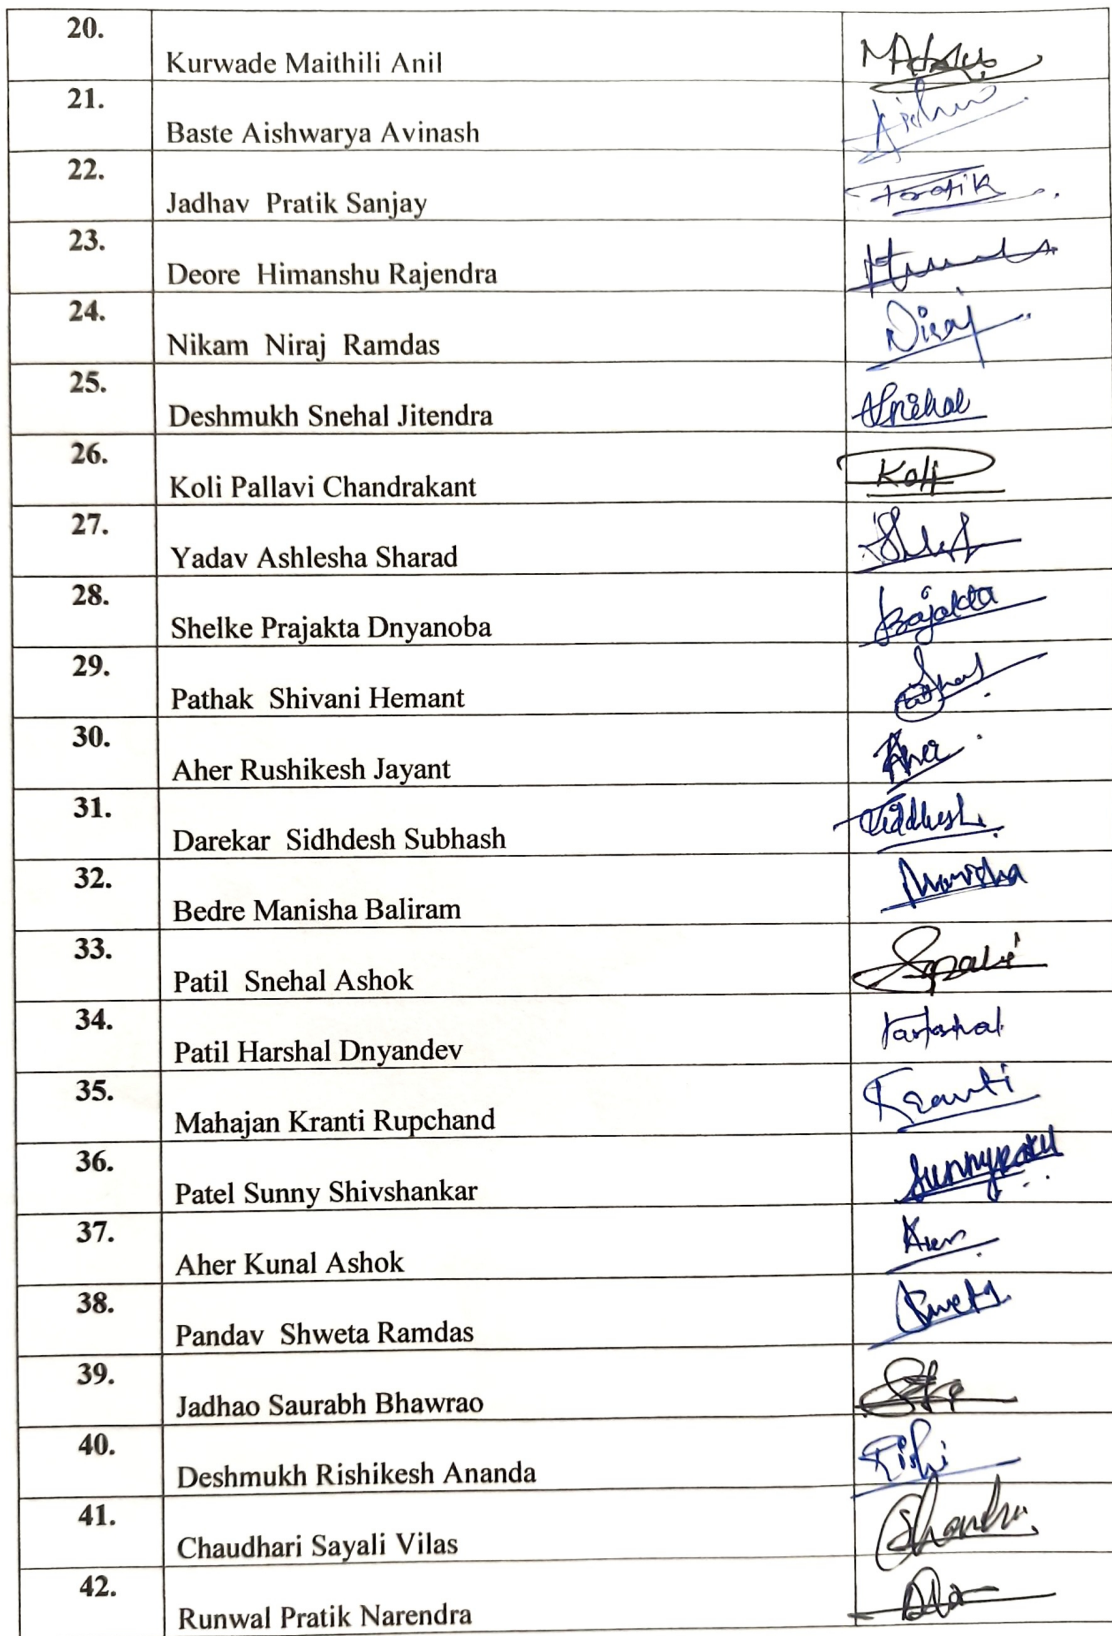 20.
Kurwade Maithili Anil
21.
Baste Aishwarya Avinash
Aishu
22.
Jadhav Pratik Sanjay
Pratik
23.
Deore Himanshu Rajendra
24.
Nikam Niraj Ramdas
Niraj
25.
Deshmukh Snehal Jitendra
Snehal
26.
Koli Pallavi Chandrakant
Koli
27.
Yadav Ashlesha Sharad
28.
Shelke Prajakta Dnyanoba
Prajakta
29.
Pathak Shivani Hemant
30.
Aher Rushikesh Jayant
Aher
31.
Darekar Sidhdesh Subhash
Siddhesh
32.
Bedre Manisha Baliram
Manisha
33.
Patil Snehal Ashok
34.
Patil Harshal Dnyandev
35.
Mahajan Kranti Rupchand
Kranti
36.
Patel Sunny Shivshankar
Sunnypatel
37.
Aher Kunal Ashok
38.
Pandav Shweta Ramdas
Shweta
39.
Jadhao Saurabh Bhawrao
40.
Deshmukh Rishikesh Ananda
Rishi
41.
Chaudhari Sayali Vilas
42.
Runwal Pratik Narendra